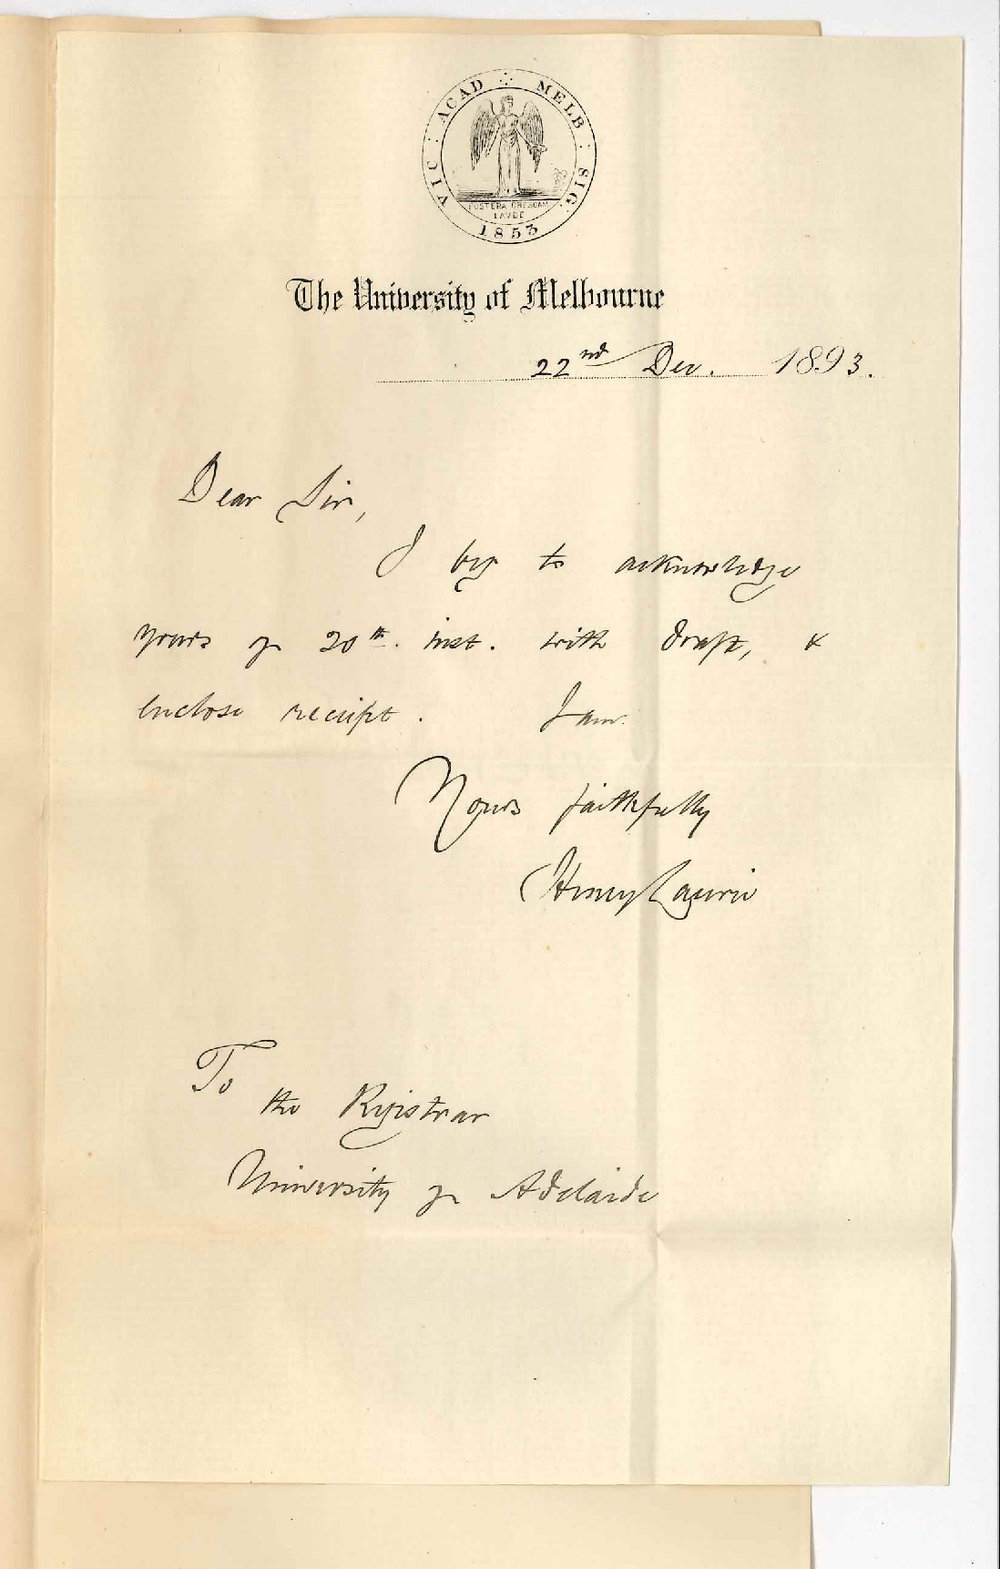 VIC : ACAD MELB : SIG.
POSTERA CRESCAM
LAVDE
1853
The University of Melbourne
22nd Dec. 1893.
Dear Sir,
I beg to acknowledge
yours of 20th. inst. with draft, &
enclose receipt. I am
Yours faithfully
Henry Laurie
To
the Registrar
University of Adelaide